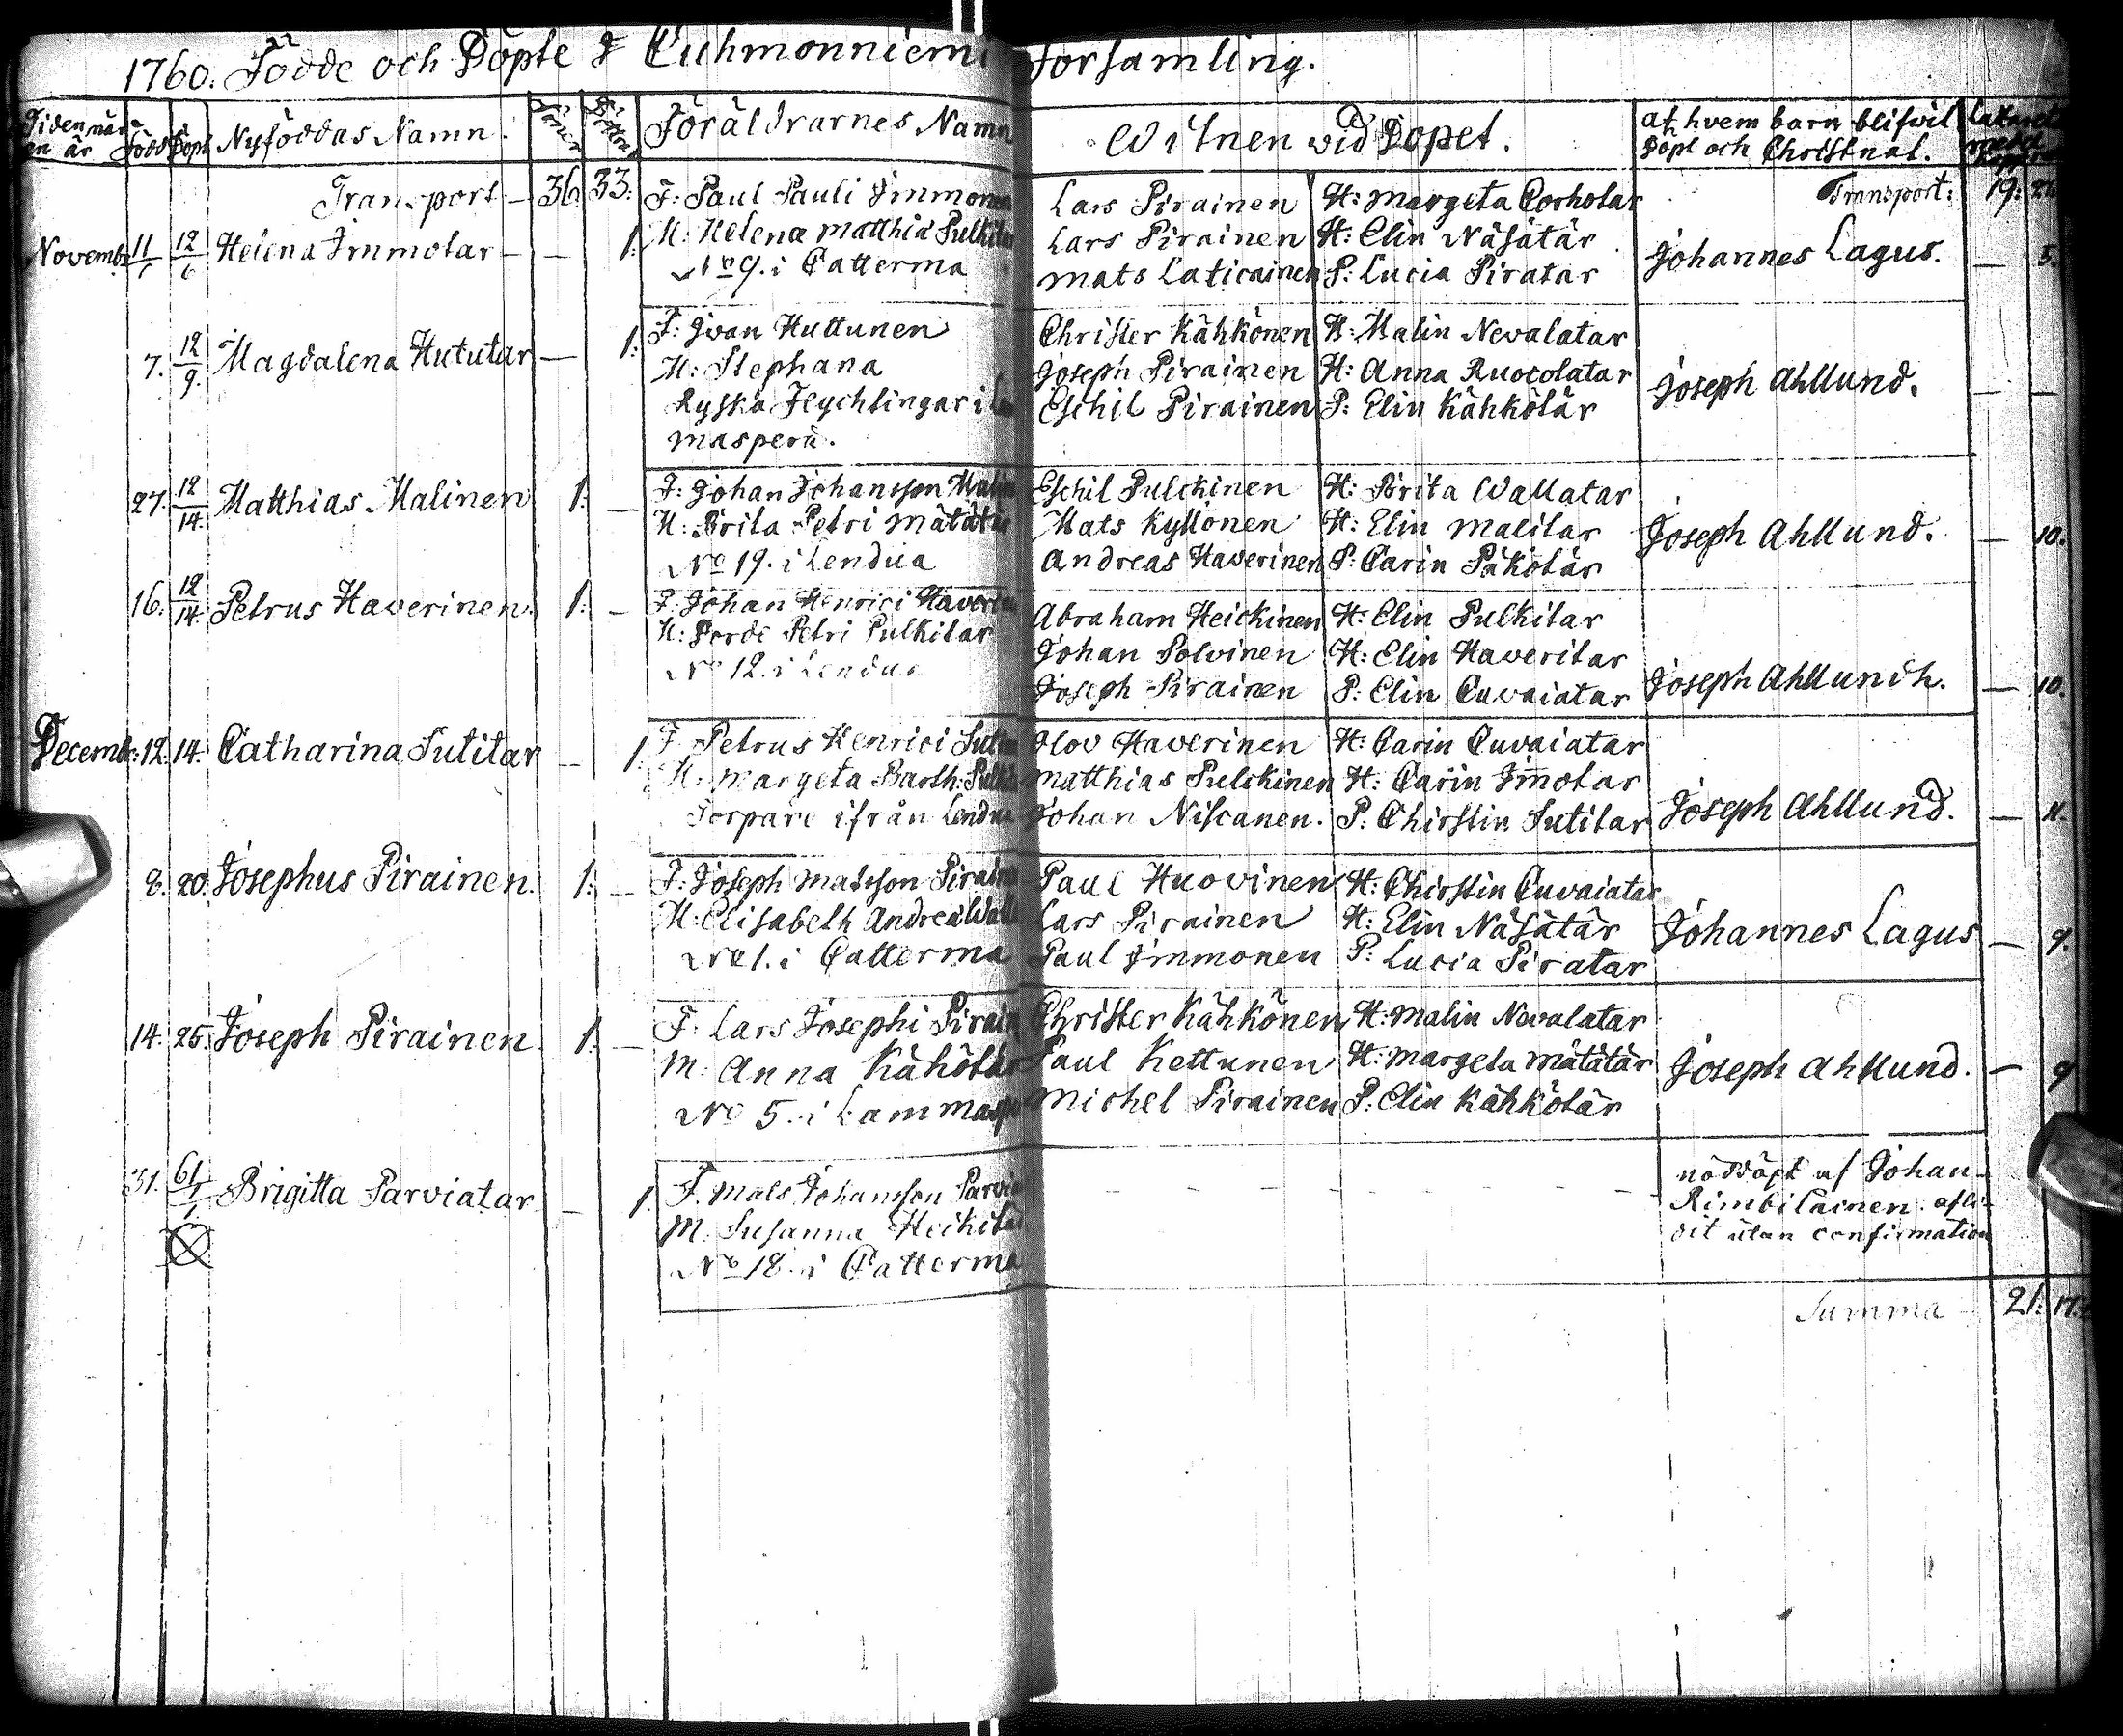 1760. Födde och Döpte I Cuhmonniemi Församling.
Födde Döpt Nyföddas Namn. Föräldrarnes Namn Witnen vid Dopet. af hvem barn blifvit
Döpt och Christnat.
Transport 36. 33. Transport: 19:
F: Paul Pauli Immonen Lars Pirainen H: Margeta Corhotar
Novembr 11/1 12/6 Helena Immotar - - 1. M: Helena Matthiæ Pulkitar Lars Pirainen H: Elin Näsätär Johannes Lagus. - 5.
No 9. i Catterma Mats Laticainen P: Lucia Piratar
7. 12/9. Magdalena Hututar - 1. F: Ivan Huttunen Christer Kähkönen H: Malin Nevalatar
M: Stephana Joseph Pirainen H: Anna Ruocolatar Joseph Ahllund. - -
Ryska Flychtingar i Lam Eschil Pirainen P: Elin Kähkötär
masperä.
27. 12/14. Matthias Malinen 1. - F: Johan Johansson Malin Eschil Pulckinen H: Brita Wallatar
M: Brita Petri Mätätär Mats Kyllönen H: Elin Malitar Joseph Ahllund. - 10.
No 19. i Lendua Andreas Haverinen P: Carin Päkötär
16. 12/14. Petrus Haverinen. 1. - F: Johan Henrici Haverin Abraham Heickinen H: Elin Pulkitar
M: Dorde Petri Pulkitar Johan Polvinen H: Elin Haveritar
No 12. i Lendua Joseph Pirainen P: Elin Cuvaiatar Joseph Ahllundh. - 10.
Decembr: 12. 14. Catharina Sutitar - 1. F. Petrus Henrici Suti Olov Haverinen H: Carin Cuvaiatar
M: Margeta Barth: Pulki Matthias Pulckinen H: Carin Imotar
Torpare ifrån Lendua Johan Niscanen. P: Chirstin Sutitar Joseph Ahllund. - 11.
8. 20. Josephus Pirainen. 1. - F: Joseph Matsson Pirain Paul Huovinen H: Chirstin Cuvaiatar
M: Elisabeth Andreæ Walla Lars Pirainen H: Elin Näsätär Johannes Lagus - 9.
No 1. i Catterma Paul Immonen P: Lucia Piratar
14. 25. Joseph Pirainen. 1. - F: Lars Josephi Pirain Christer Kähkönen H: Malin Nevalatar
M: Anna Kähötär Paul Kettunen H: Margeta Mätätär Joseph Ahllund. - 9
No 5. i Lammasp Michel Pirainen P: Elin Kähkötär
31. 61/1 Brigitta Parviatar - 1. F. Mats Johansson Parvi - - - - nöddöpt af Johan
M. Susanna Heikitar Rimbilainen. afli-
No 18. i Catterma dit utan confirmation
Summa 21. 17.